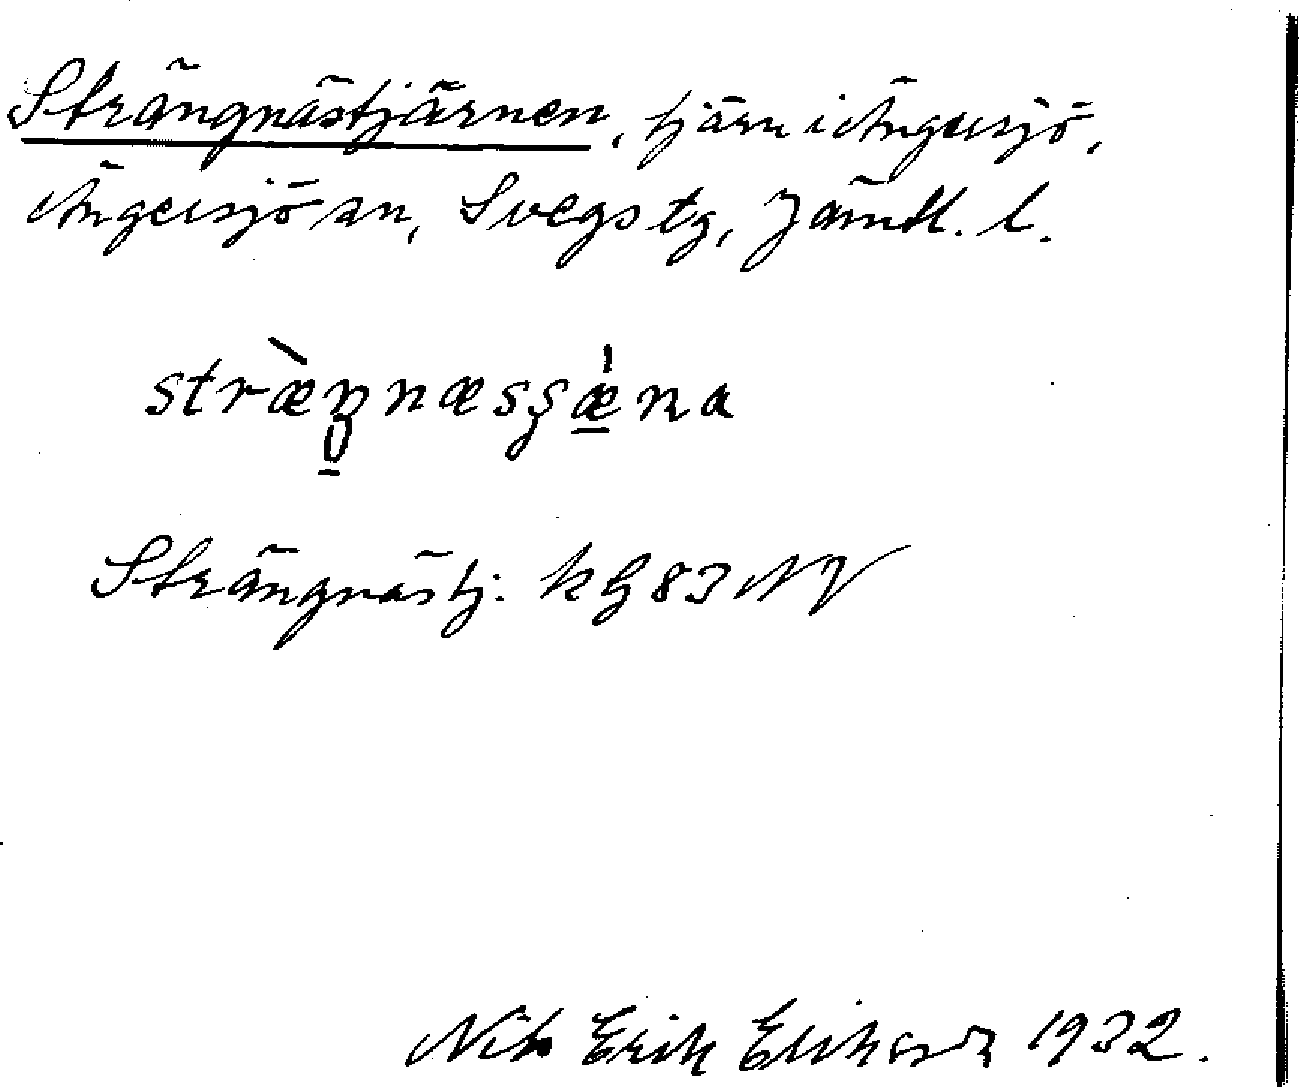 Strängnästjärnen, tjärn i Ängersjö,
Ängersjö sn, Svegs tg, Jämtl. l.
stræ̀ŋnæsʂǽna
Strängnästj. kG 83 NV
Nils Erik Eriksson 1932.